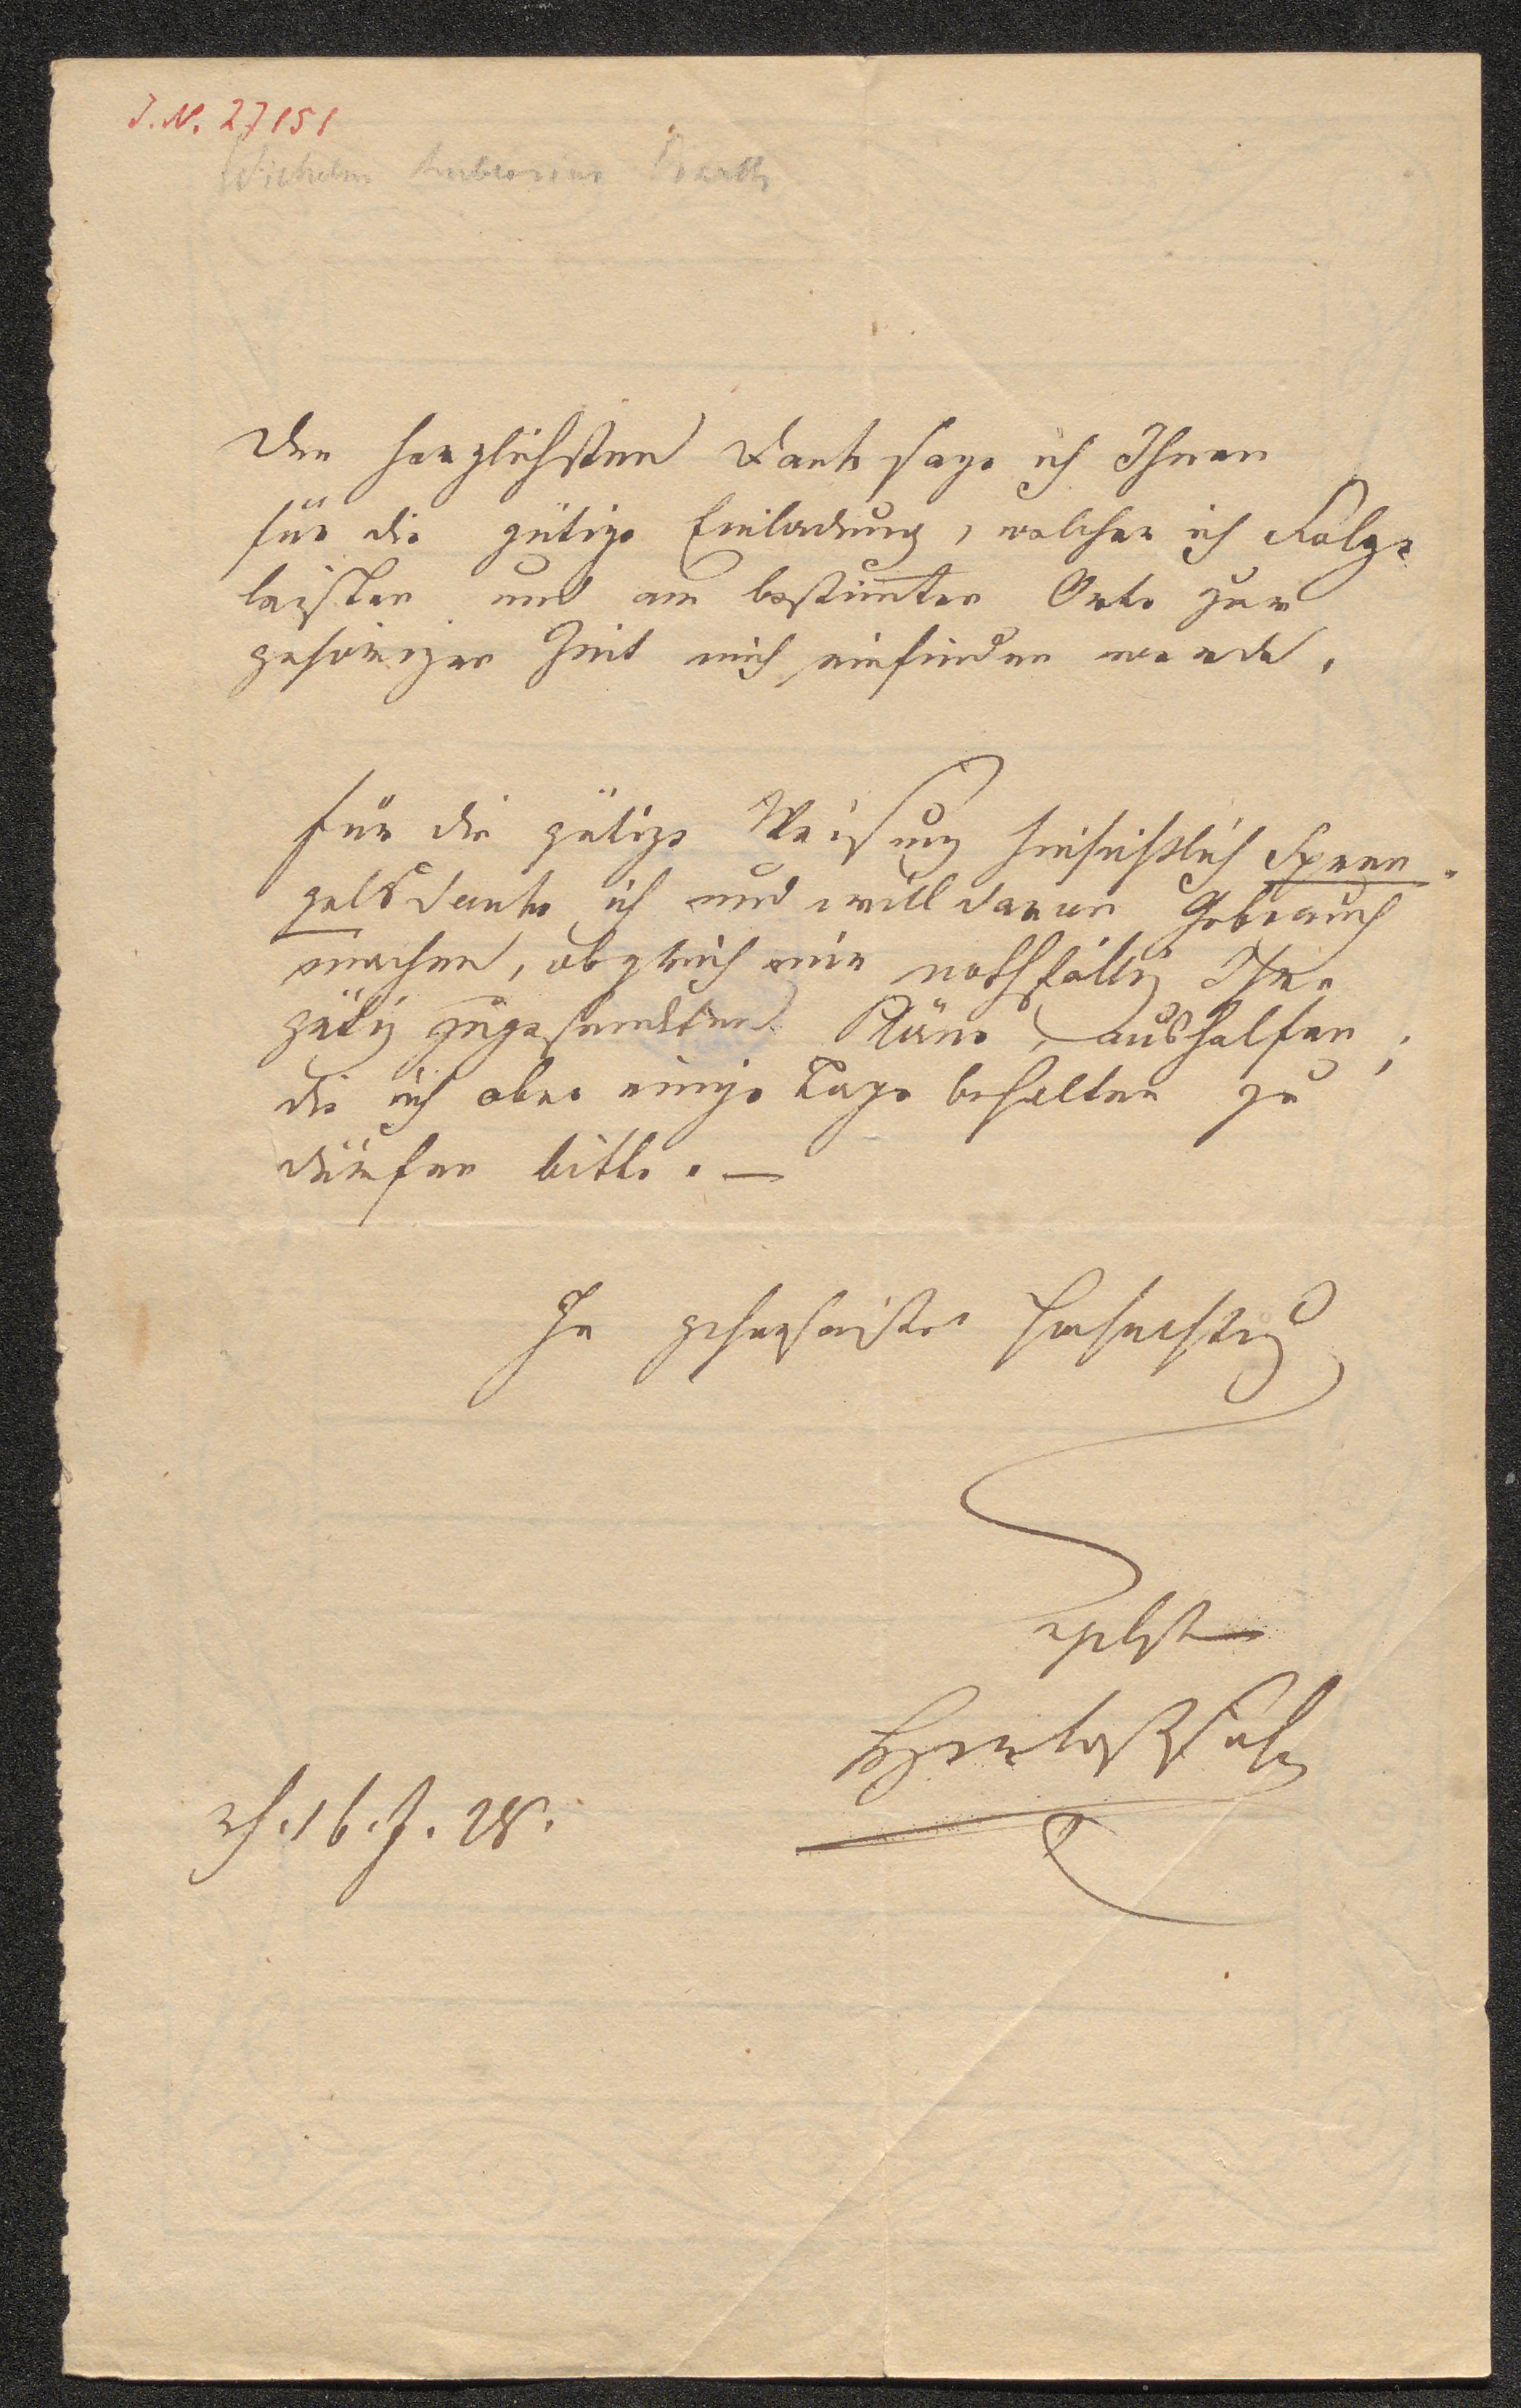 I.N. 27151
Wilhelm Ambrosius Barth
Den herzlichsten Dank sage ich Ihnen
für die gütige Einladung, welcher ich Folge
leisten und am bestimten Orte zur
gehörigen Zeit mich einfinden werde.
Für die gütige Weisung hinsichtlich Spren-
gels danke ich und will davon Gebrauch
machen, obgleich mir nothfällig Ihre
gütig zugesendeten Pläne, aushelfen;
die ich aber einige Tage behalten zu
dürfen bitte. —
In gehorsamster Hochachtung
16. J. 28.